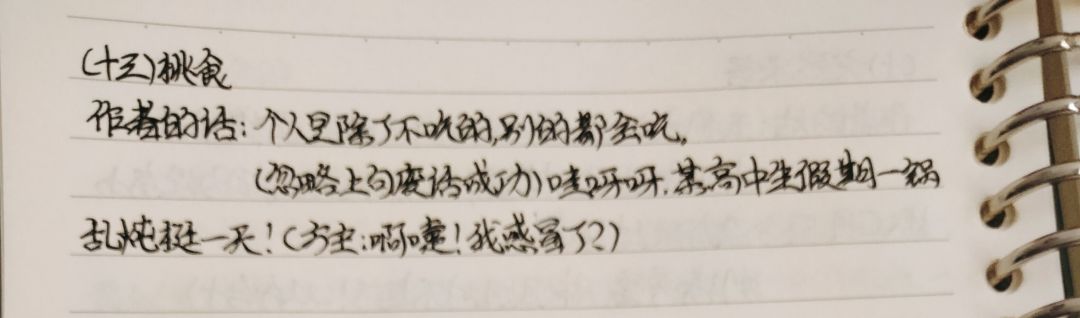 (十三)挑食
作者的话:个人里除了不吃的,别的都会吃。
(忽略上句废话成功)哇呀呀,某高中生假期一锅
乱炖挺一天!(方士:啊嚏!我感冒了?)